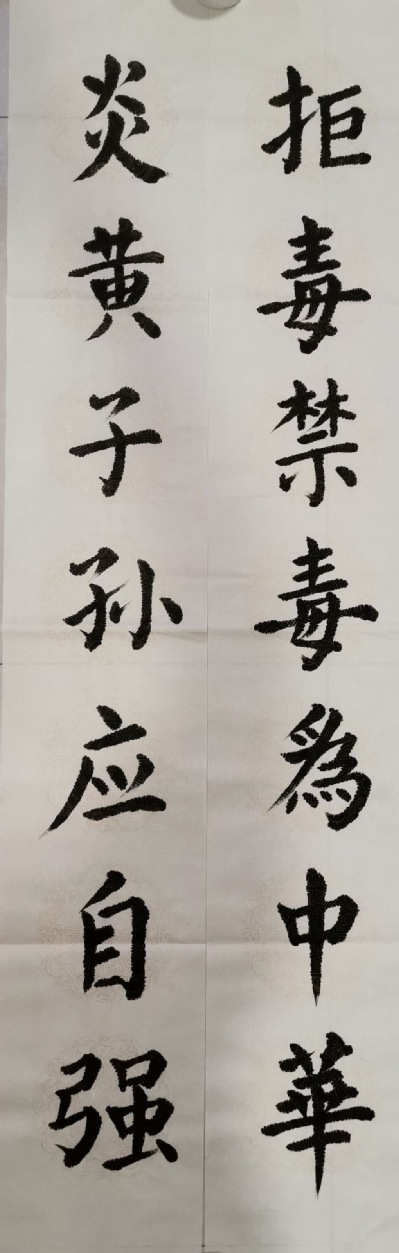 拒毒禁毒為中華
炎黄子孙应自强